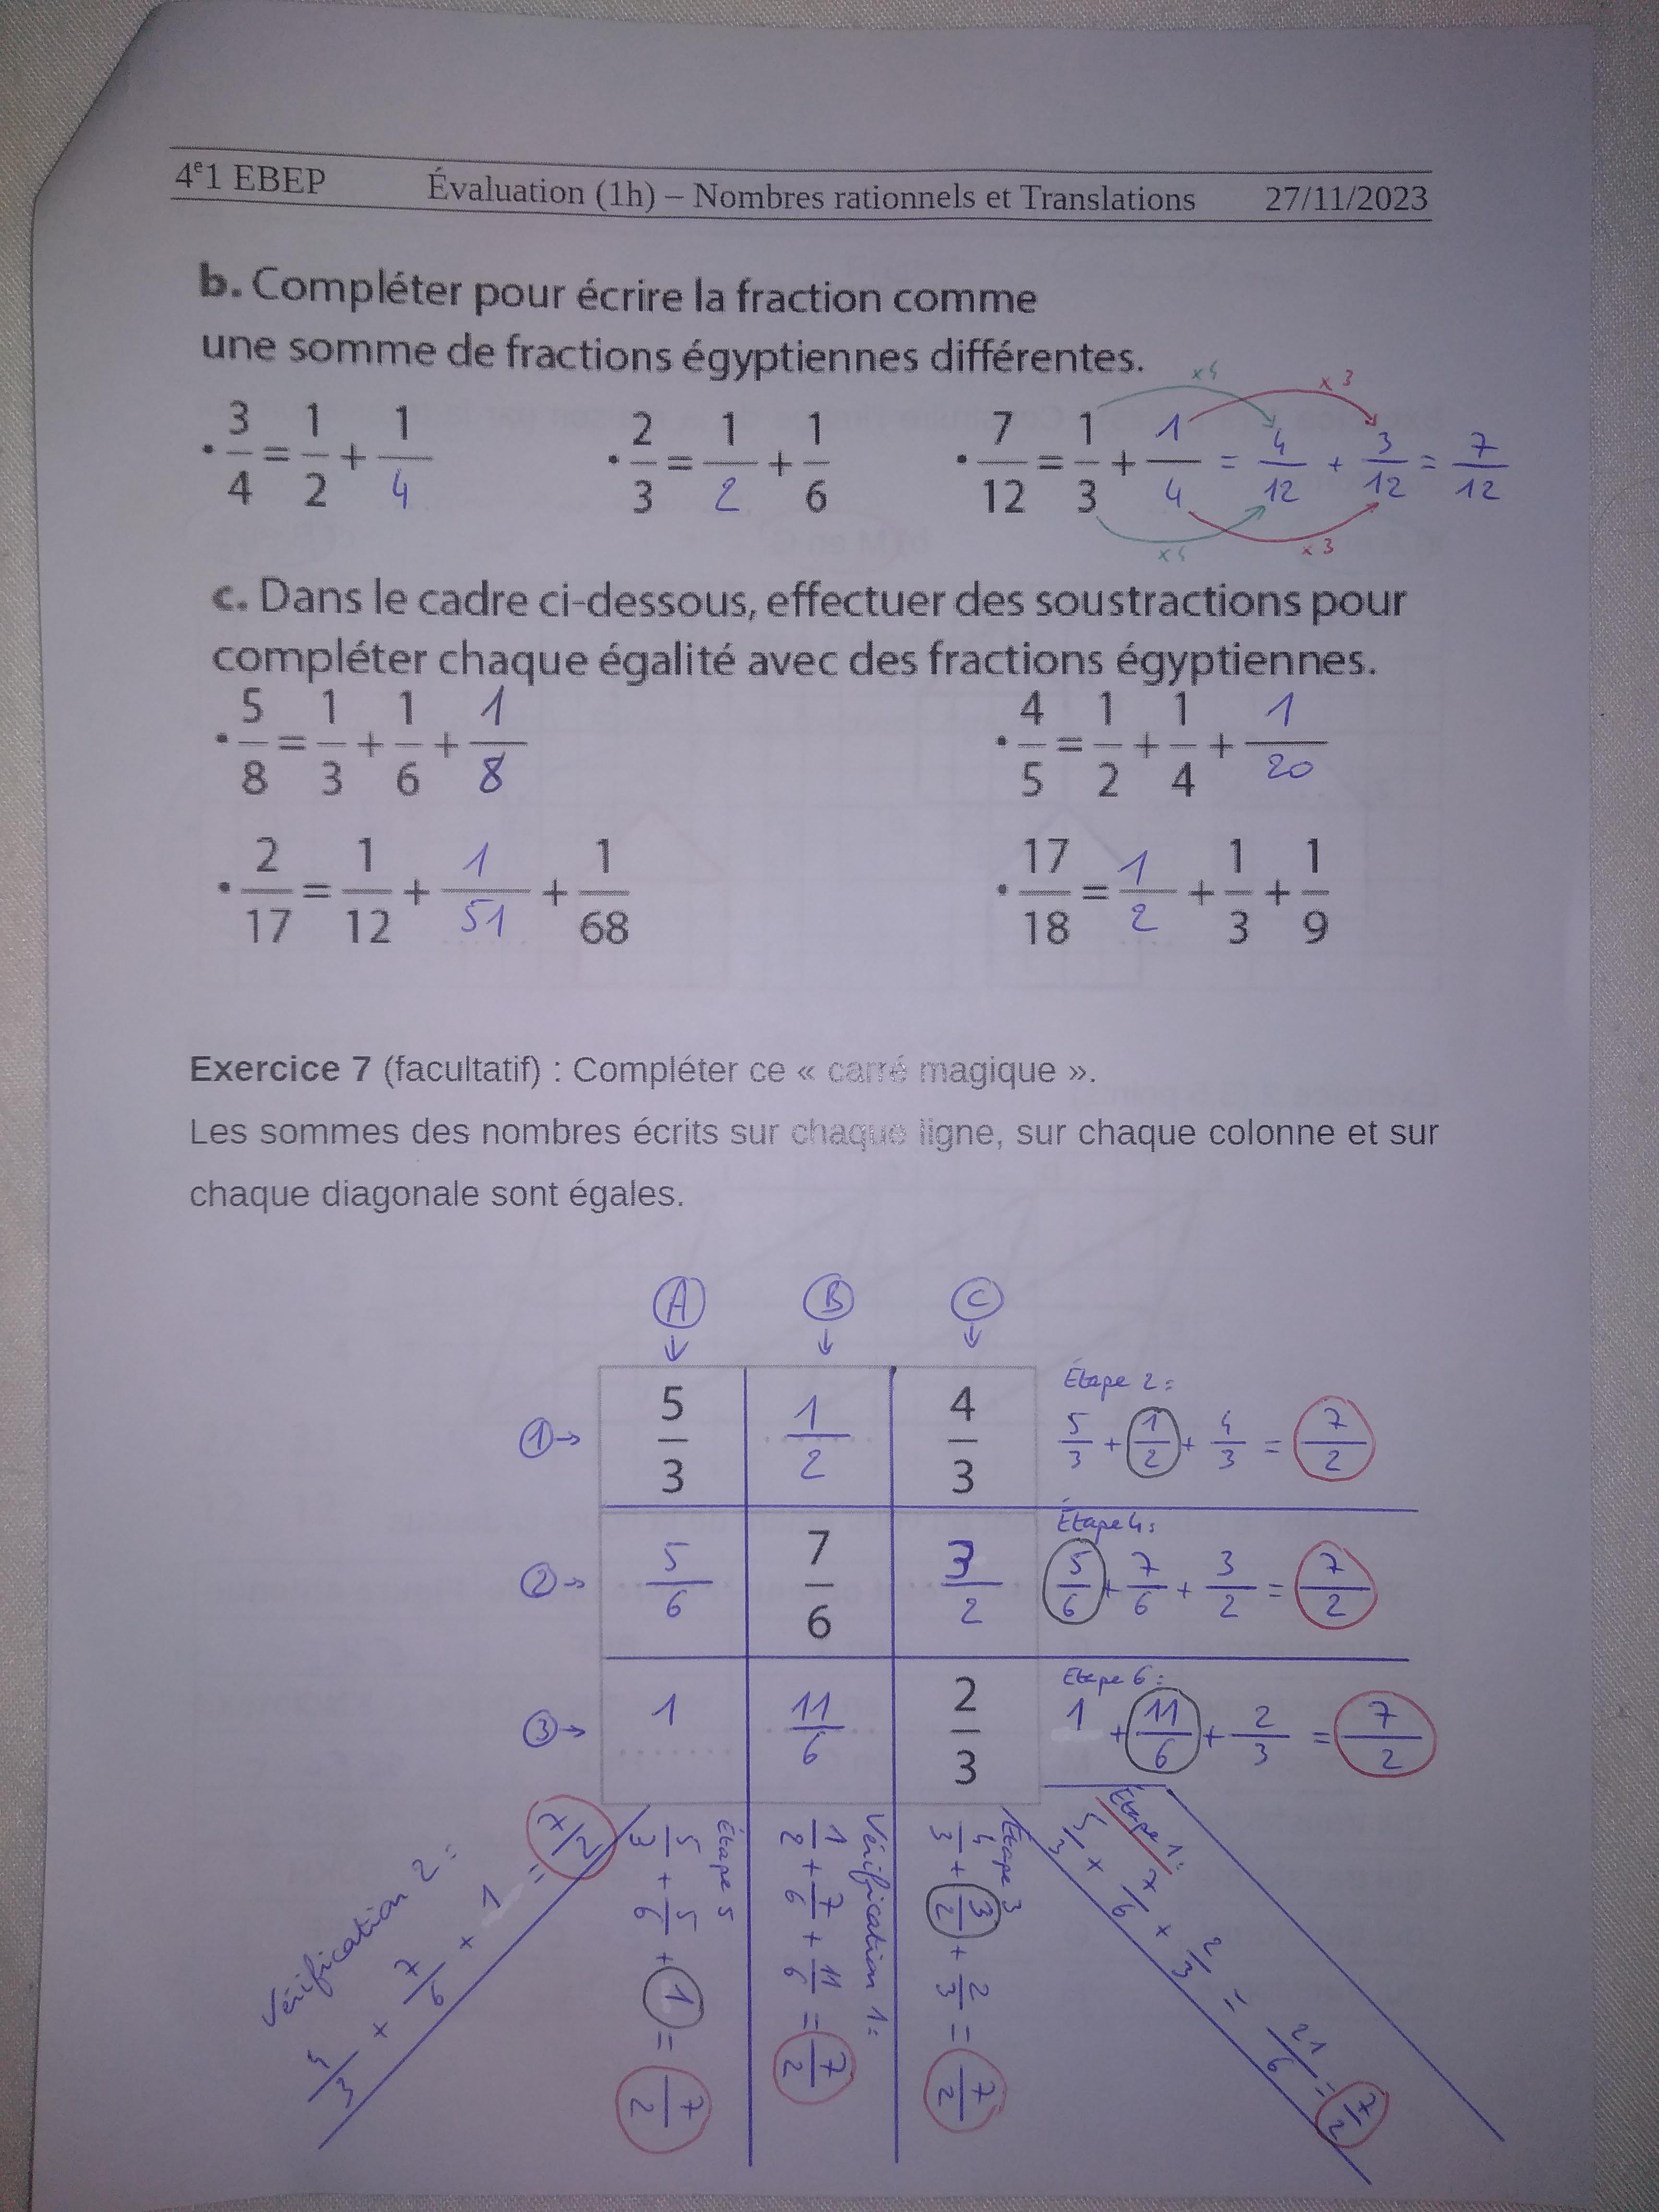 4e1 EBEP Évaluation (1h) – Nombres rationnels et Translations 27/11/2023
b. Compléter pour écrire la fraction comme
une somme de fractions égyptiennes différentes.
x4 x3
• 3/4 = 1/2 + 1/4 • 2/3 = 1/2 + 1/6 • 7/12 = 1/3 + 1/4 = 4/12 + 3/12 = 7/12
x4 x3
c. Dans le cadre ci-dessous, effectuer des soustractions pour
compléter chaque égalité avec des fractions égyptiennes.
• 5/8 = 1/3 + 1/6 + 1/8 • 4/5 = 1/2 + 1/4 + 1/20
• 2/17 = 1/12 + 1/51 + 1/68 • 17/18 = 1/2 + 1/3 + 1/9
Exercice 7 (facultatif) : Compléter ce « carré magique ».
Les sommes des nombres écrits sur chaque ligne, sur chaque colonne et sur
chaque diagonale sont égales.
A B C
Étape 2:
1 5/3 1/2 4/3 5/3 + 1/2 + 4/3 = 7/2
Étape 4:
2 5/6 7/6 3/2 5/6 + 7/6 + 3/2 = 7/2
Etape 6:
3 1 11/6 2/3 1 + 11/6 + 2/3 = 7/2
Vérification 2:
4/3 × 7/6 × 1 = 7/2
Étape 5
5/3 + 5/6 + 1 = 7/2
Vérification 1:
1/2 + 7/6 + 11/6 = 7/2
Étape 3
4/3 + 3/2 + 2/3 = 7/2
Étape 1:
5/3 × 7/6 × 2/3 = 21/6 = 7/2